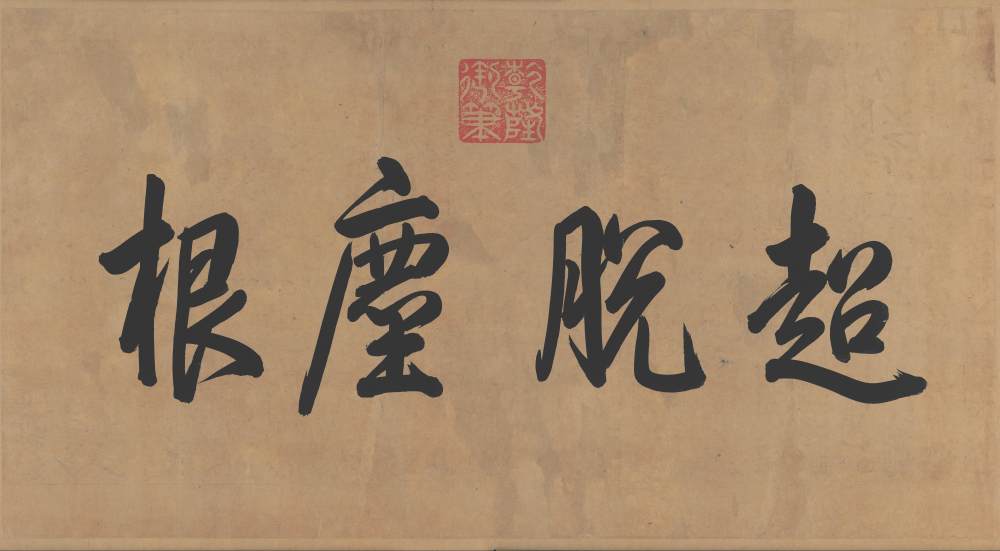 超脫塵根
乾隆御筆